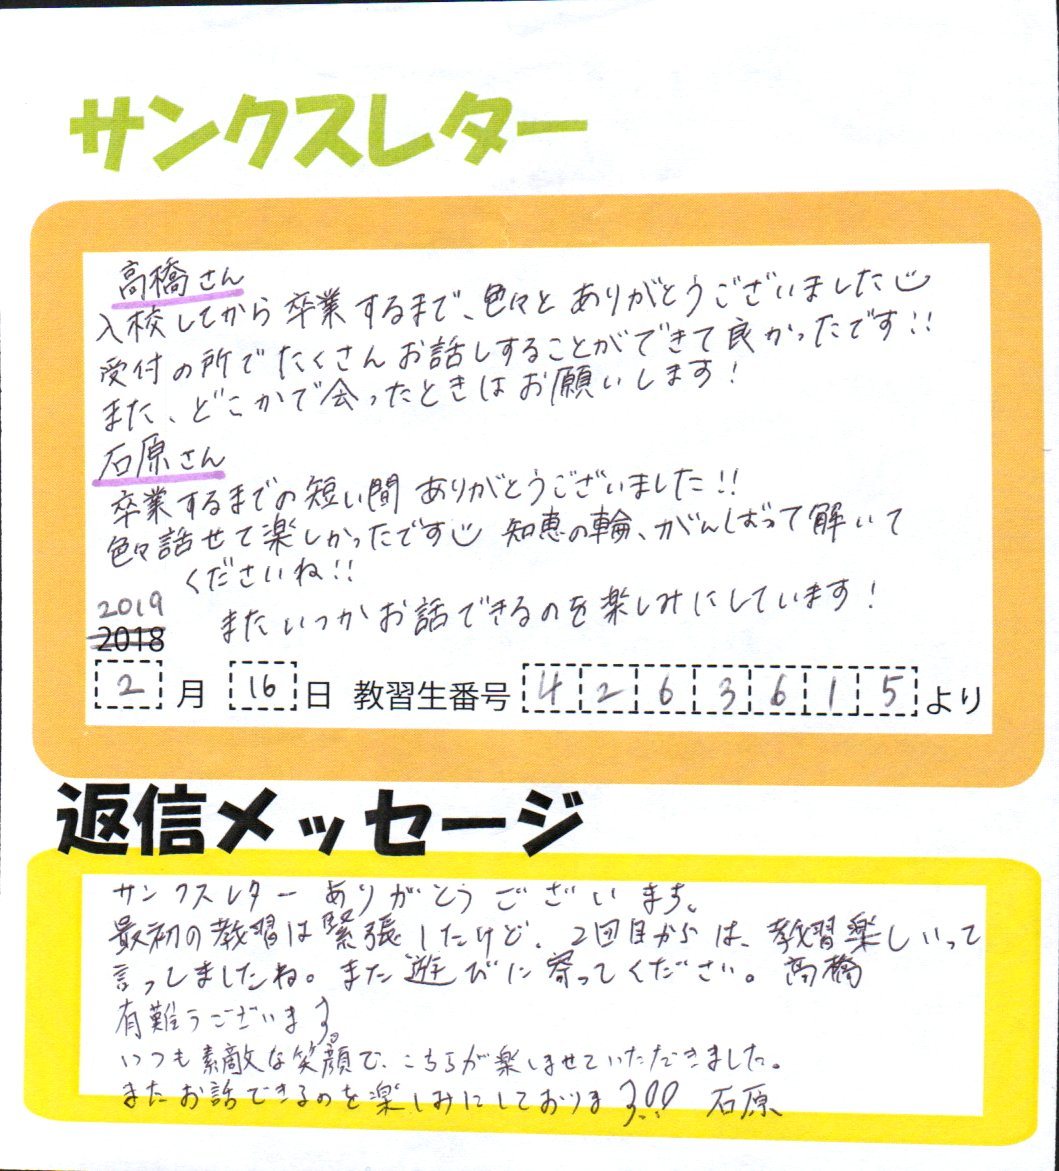 サンクスレター
高橋さん
入校してから卒業するまで、色々とありがとうございました
受付の所でたくさんお話しすることができて良かったです!!
また、どこかで会ったときはお願いします!
石原さん
卒業するまでの短い間ありがとうございました!!
色々話せて楽しかったです 知恵の輪、がんばって解いて
くださいね!!
2019 またいつかお話できるのを楽しみにしています!
2018
2月16日 教習生番号 4263615より
返信メッセージ
サンクスレターありがとうございます。
最初の教習は緊張したけど、2回目からは、教習楽しいって
言ってましたね。また遊びに寄ってください。 高橋
有難うございます。
いつも素敵な笑顔で、こちらが楽しませていただきました。
またお話できるのを楽しみにしております!!! 石原